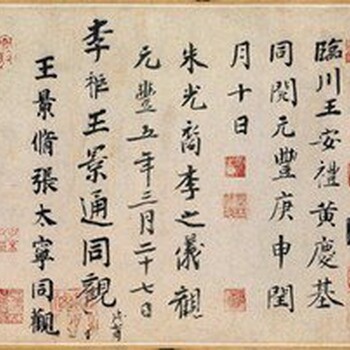 臨川王安禮黃慶基
同閱元豐庚申閏
月十日
朱光裔李之儀觀
元豐五年三月二十七日
李祉王景通同觀
王景脩張太寧同觀